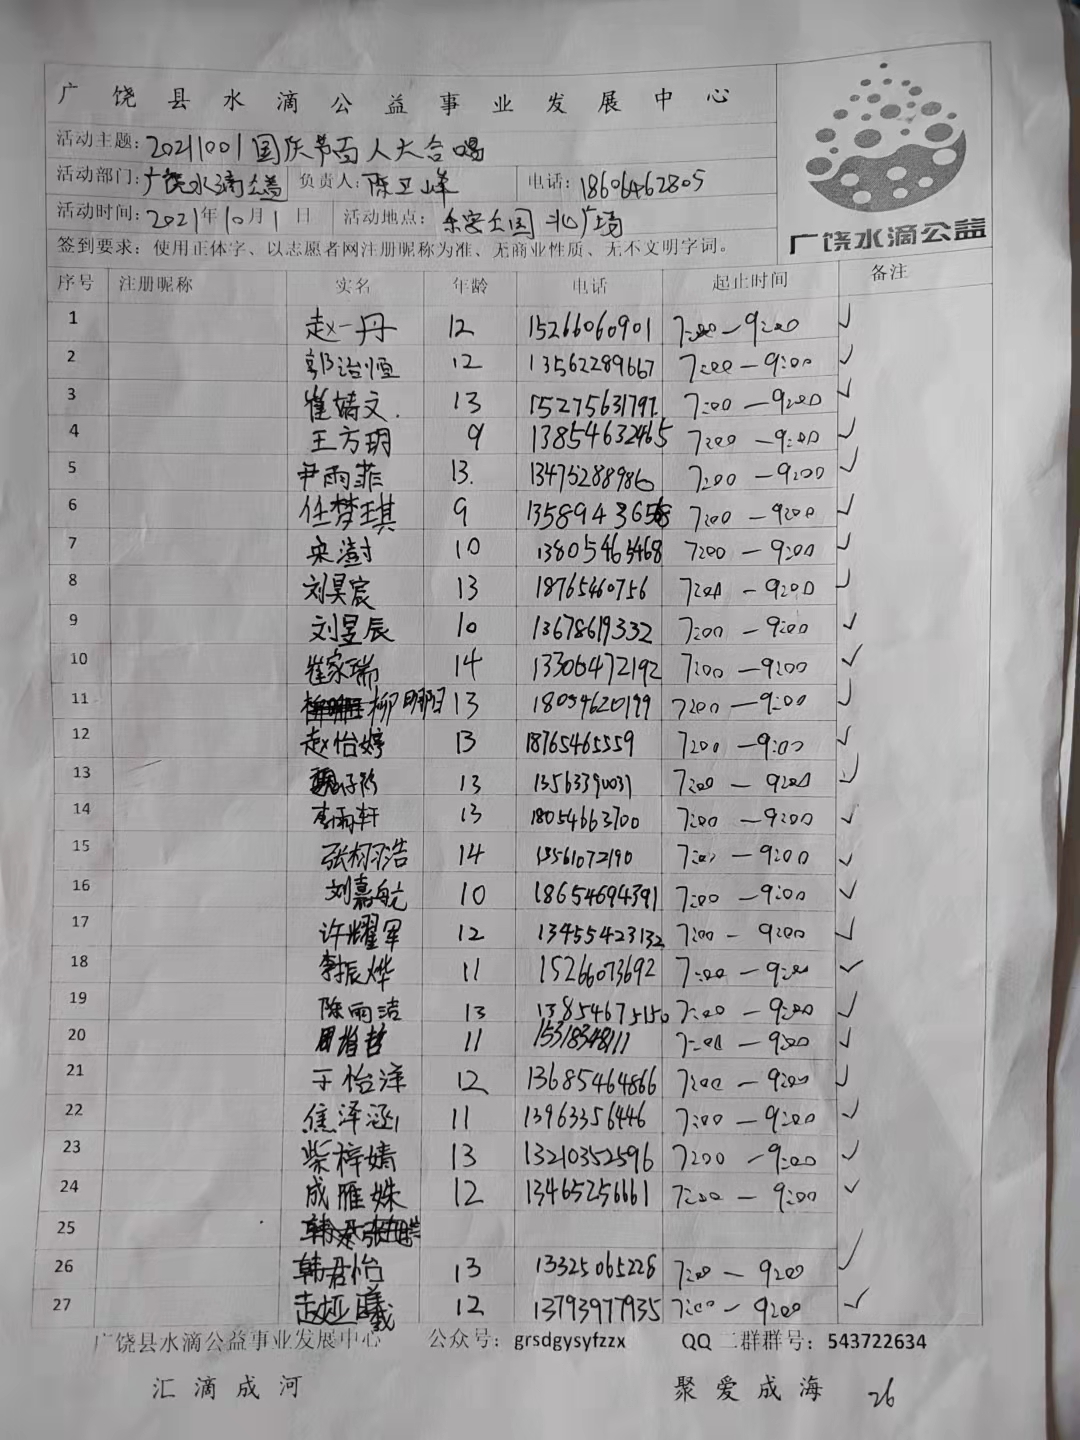 广饶县水滴公益事业发展中心
活动主题: 20211001国庆节百人大合唱
活动部门: 广饶水滴公益 负责人: 陈卫峰 电话: 18606462805
活动时间: 2021年10月1日 活动地点: 乐安公园 北广场
广饶水滴公益
签到要求: 使用正体字、以志愿者网注册昵称为准、无商业性质、无不文明字词。
序号 注册昵称 实名 年龄 电话 起止时间 备注
1 赵一丹 12 15266060901 7:00—9:00 ✓
2 郭治恒 12 13562289667 7:00—9:00 ✓
3 崔婧文. 13 15275631797. 7:00—9:00 ✓
4 王方玥 9 13854632465 7:00—9:00 ✓
5 尹雨菲 13. 13475288986 7:00—9:00 ✓
6 任梦琪 9 7:00—9:00 ✓
7 宋澍 10 13805463468 7:00—9:00 ✓
8 刘昊宸 13 18765460756 7:00—9:00 ✓
9 刘昱辰 10 13678619332 7:00—9:00 ✓
10 崔家瑞 14 13306472192 7:00—9:00 ✓
11 柳明阳 13 18054620199 7:00—9:00 ✓
12 赵怡婷 13 18765465559 7:00—9:00 ✓
13 13 13563390031 7:00—9:00 ✓
14 李雨轩 13 18054663700 7:00—9:00 ✓
15 14 13561072190 7:00—9:00 ✓
16 刘嘉航 10 18654694391 7:00—9:00 ✓
17 许耀军 12 13455423132 7:00—9:00 ✓
18 李振烨 11 15266073692 7:00—9:00 ✓
19 陈雨洁 13 13854675150 7:00—9:00 ✓
20 11 15318348111 7:00—9:00 ✓
21 于怡泽 12 13685464866 7:00—9:00 ✓
22 焦泽涵 11 13963356446 7:00—9:00 ✓
23 柴梓婧 13 13210352596 7:00—9:00 ✓
24 成雁姝 12 13465256661 7:00—9:00 ✓
25
26 韩君怡 13 13325065228 7:00—9:00 ✓
27 赵娅曦 12 13793977935 7:00—9:00 ✓
广饶县水滴公益事业发展中心 公众号: grsdgysyfzzx QQ 二群群号: 543722634
汇滴成河 聚爱成海 26